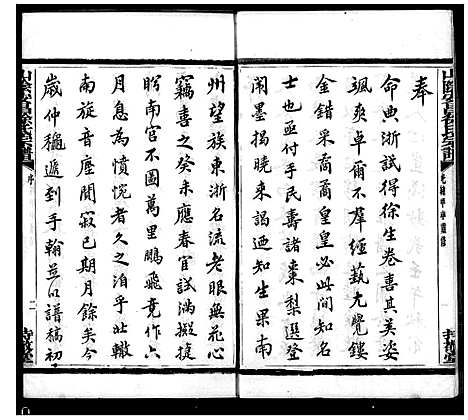 奉
命典浙試得徐生卷喜其英姿
颯爽卓爾不羣經藝尤覺鏤
金錯采裔裔皇皇必如是
士也亟付手民諸棗梨迨登
闈墨榜發後知生果南
州望族東浙名流老眼無花心
竊喜之癸未應春官試滿擬捷
盼南宮不圖萬里鵬飛竟作六
月息為憤惋者久之洎乎北轍
南旋音塵閴寂已期月餘矣今
歲仲穐遞到手翰並以譜稿初
序
二
一